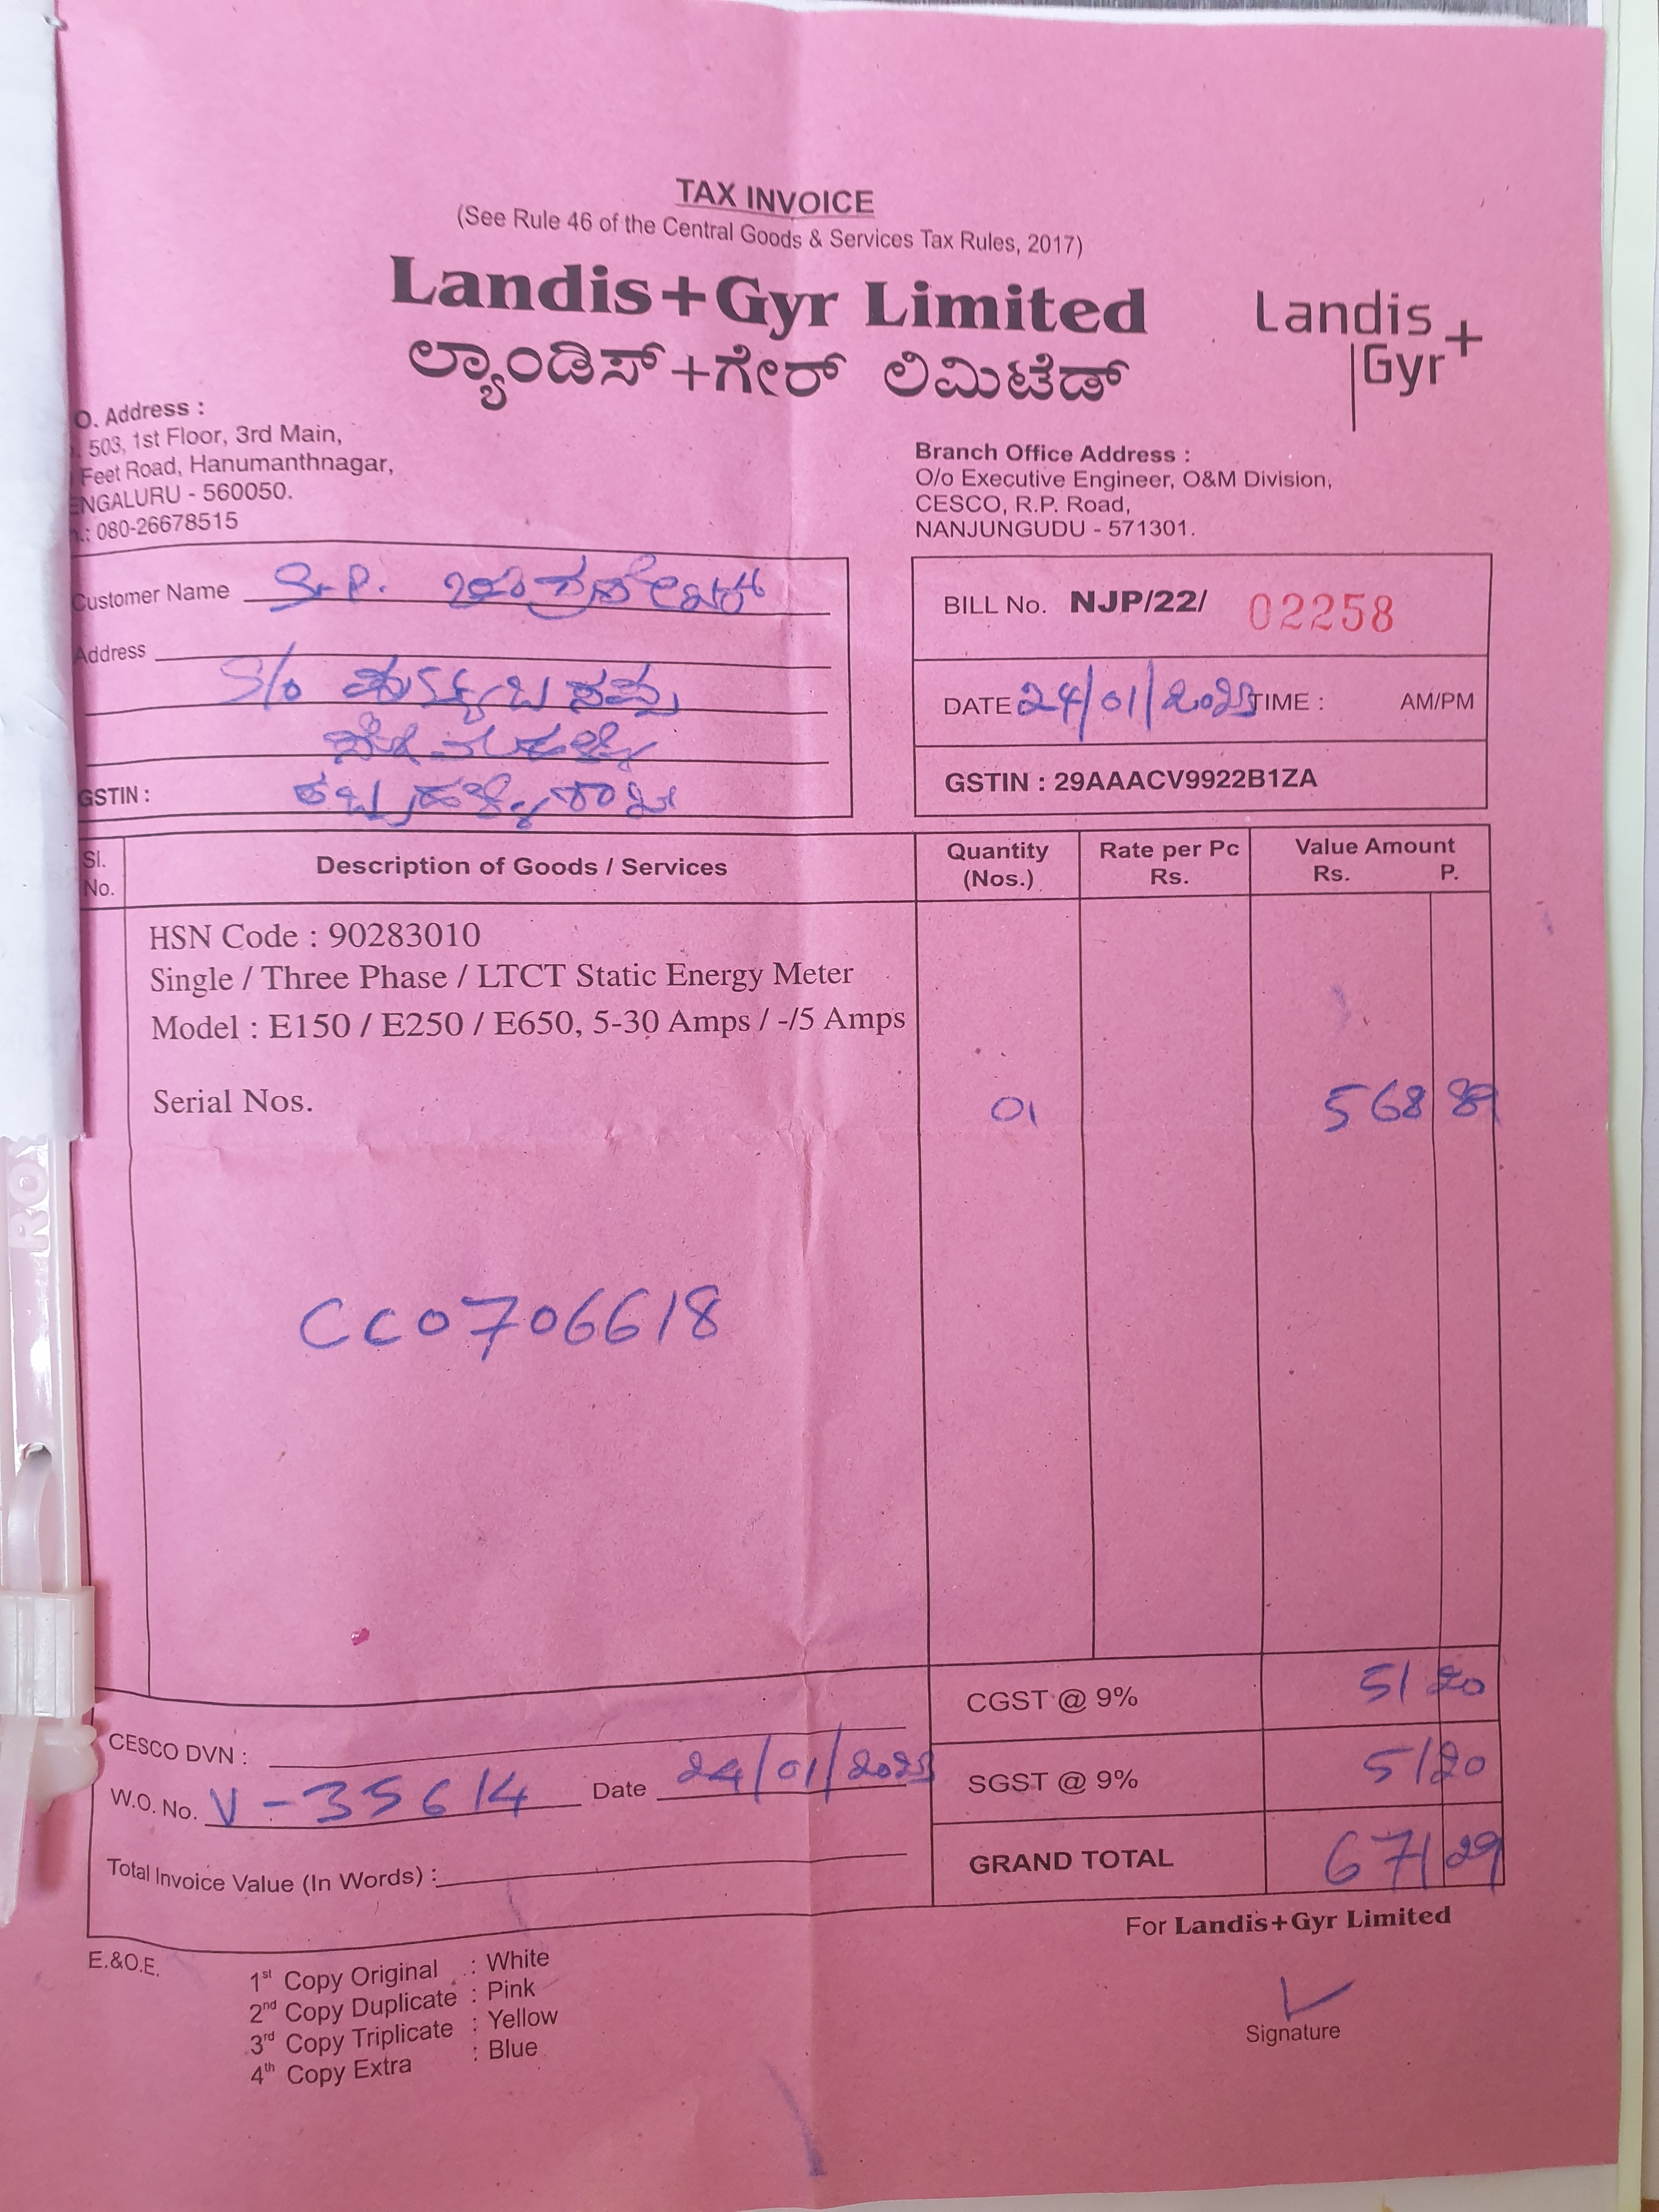 TAX INVOICE
(See Rule 46 of the Central Goods & Services Tax Rules, 2017)
Landis+Gyr Limited
ಲ್ಯಾಂಡಿಸ್+ಗೇರ್ ಲಿಮಿಟೆಡ್
Landis
Gyr+
O. Address :
503, 1st Floor, 3rd Main,
Feet Road, Hanumanthnagar,
ENGALURU - 560050.
: 080-26678515
Branch Office Address :
O/o Executive Engineer, O&M Division,
CESCO, R.P. Road,
NANJUNGUDU - 571301.
Customer Name S.P. ಚಂದ್ರಶೇಖರ್
Address
S/o
GSTIN :
BILL No. NJP/22/ 02258
DATE 24/01/2023 TIME : AM/PM
GSTIN : 29AAACV9922B1ZA
Sl. No. Description of Goods / Services Quantity (Nos.) Rate per Pc Rs. Value Amount Rs. P.
HSN Code : 90283010
Single / Three Phase / LTCT Static Energy Meter
Model : E150 / E250 / E650, 5-30 Amps / -/5 Amps
Serial Nos. 01 568 89
CC0706618
CGST @ 9% 51 20
SGST @ 9% 51 20
GRAND TOTAL 671 29
CESCO DVN :
W.O. No. V-35614 Date 24/01/2023
Total Invoice Value (In Words) :
For Landis+Gyr Limited
Signature
E.&O.E.
1st Copy Original : White
2nd Copy Duplicate : Pink
3rd Copy Triplicate : Yellow
4th Copy Extra : Blue